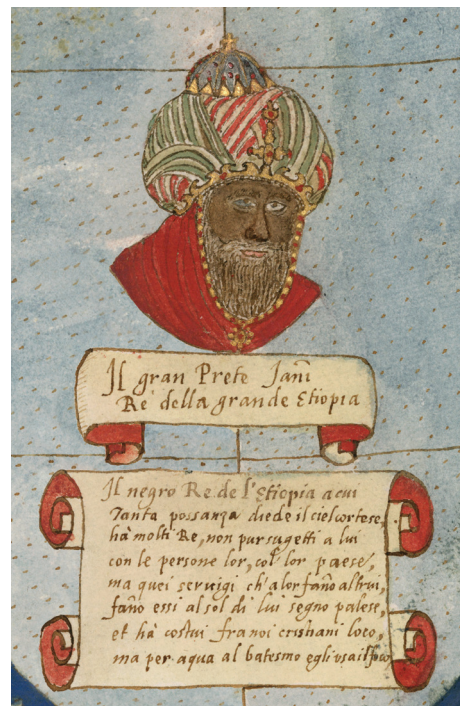 Il gran Prete Janñi
Re della grande Etiopia
Il negro Re de l'Etiopia a cui
Tanta possanza diede il ciel cortese,
hà molti Re, non pur sugetti a lui
con le persone lor, col lor paese,
ma quei seruigi ch'a lor fano altrui,
fano essi al sol di lui segno palese,
et hà costui fra noi cristiani loco,
ma per aqua al batesmo egli usa il foco